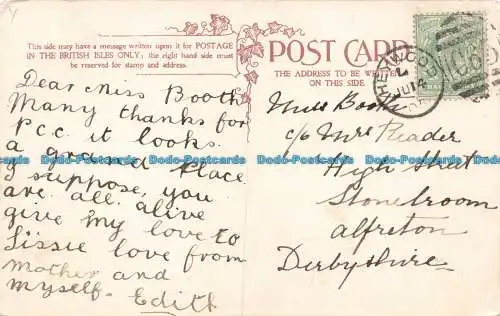 This side may have a message written upon it for POSTAGE
IN THE BRITISH ISLES ONLY; the right hand side must
be reserved for stamp and address.
Dear Miss Booth
Many thanks for
P.C.C. it looks
a grand Place
I suppose, you
are all alive
give my love to
Lissie love from
Mother and
myself- Edith
POST CARD
THE ADDRESS TO BE WRITTEN
ON THIS SIDE.
Miss Booth
c/o Mrs Reader
High Street
Stonebroom
Alfreton
Derbyshire
Dodo-Postcards Dodo-Postcards Dodo-Postcards Dodo-Postcards Dodo-Postcards